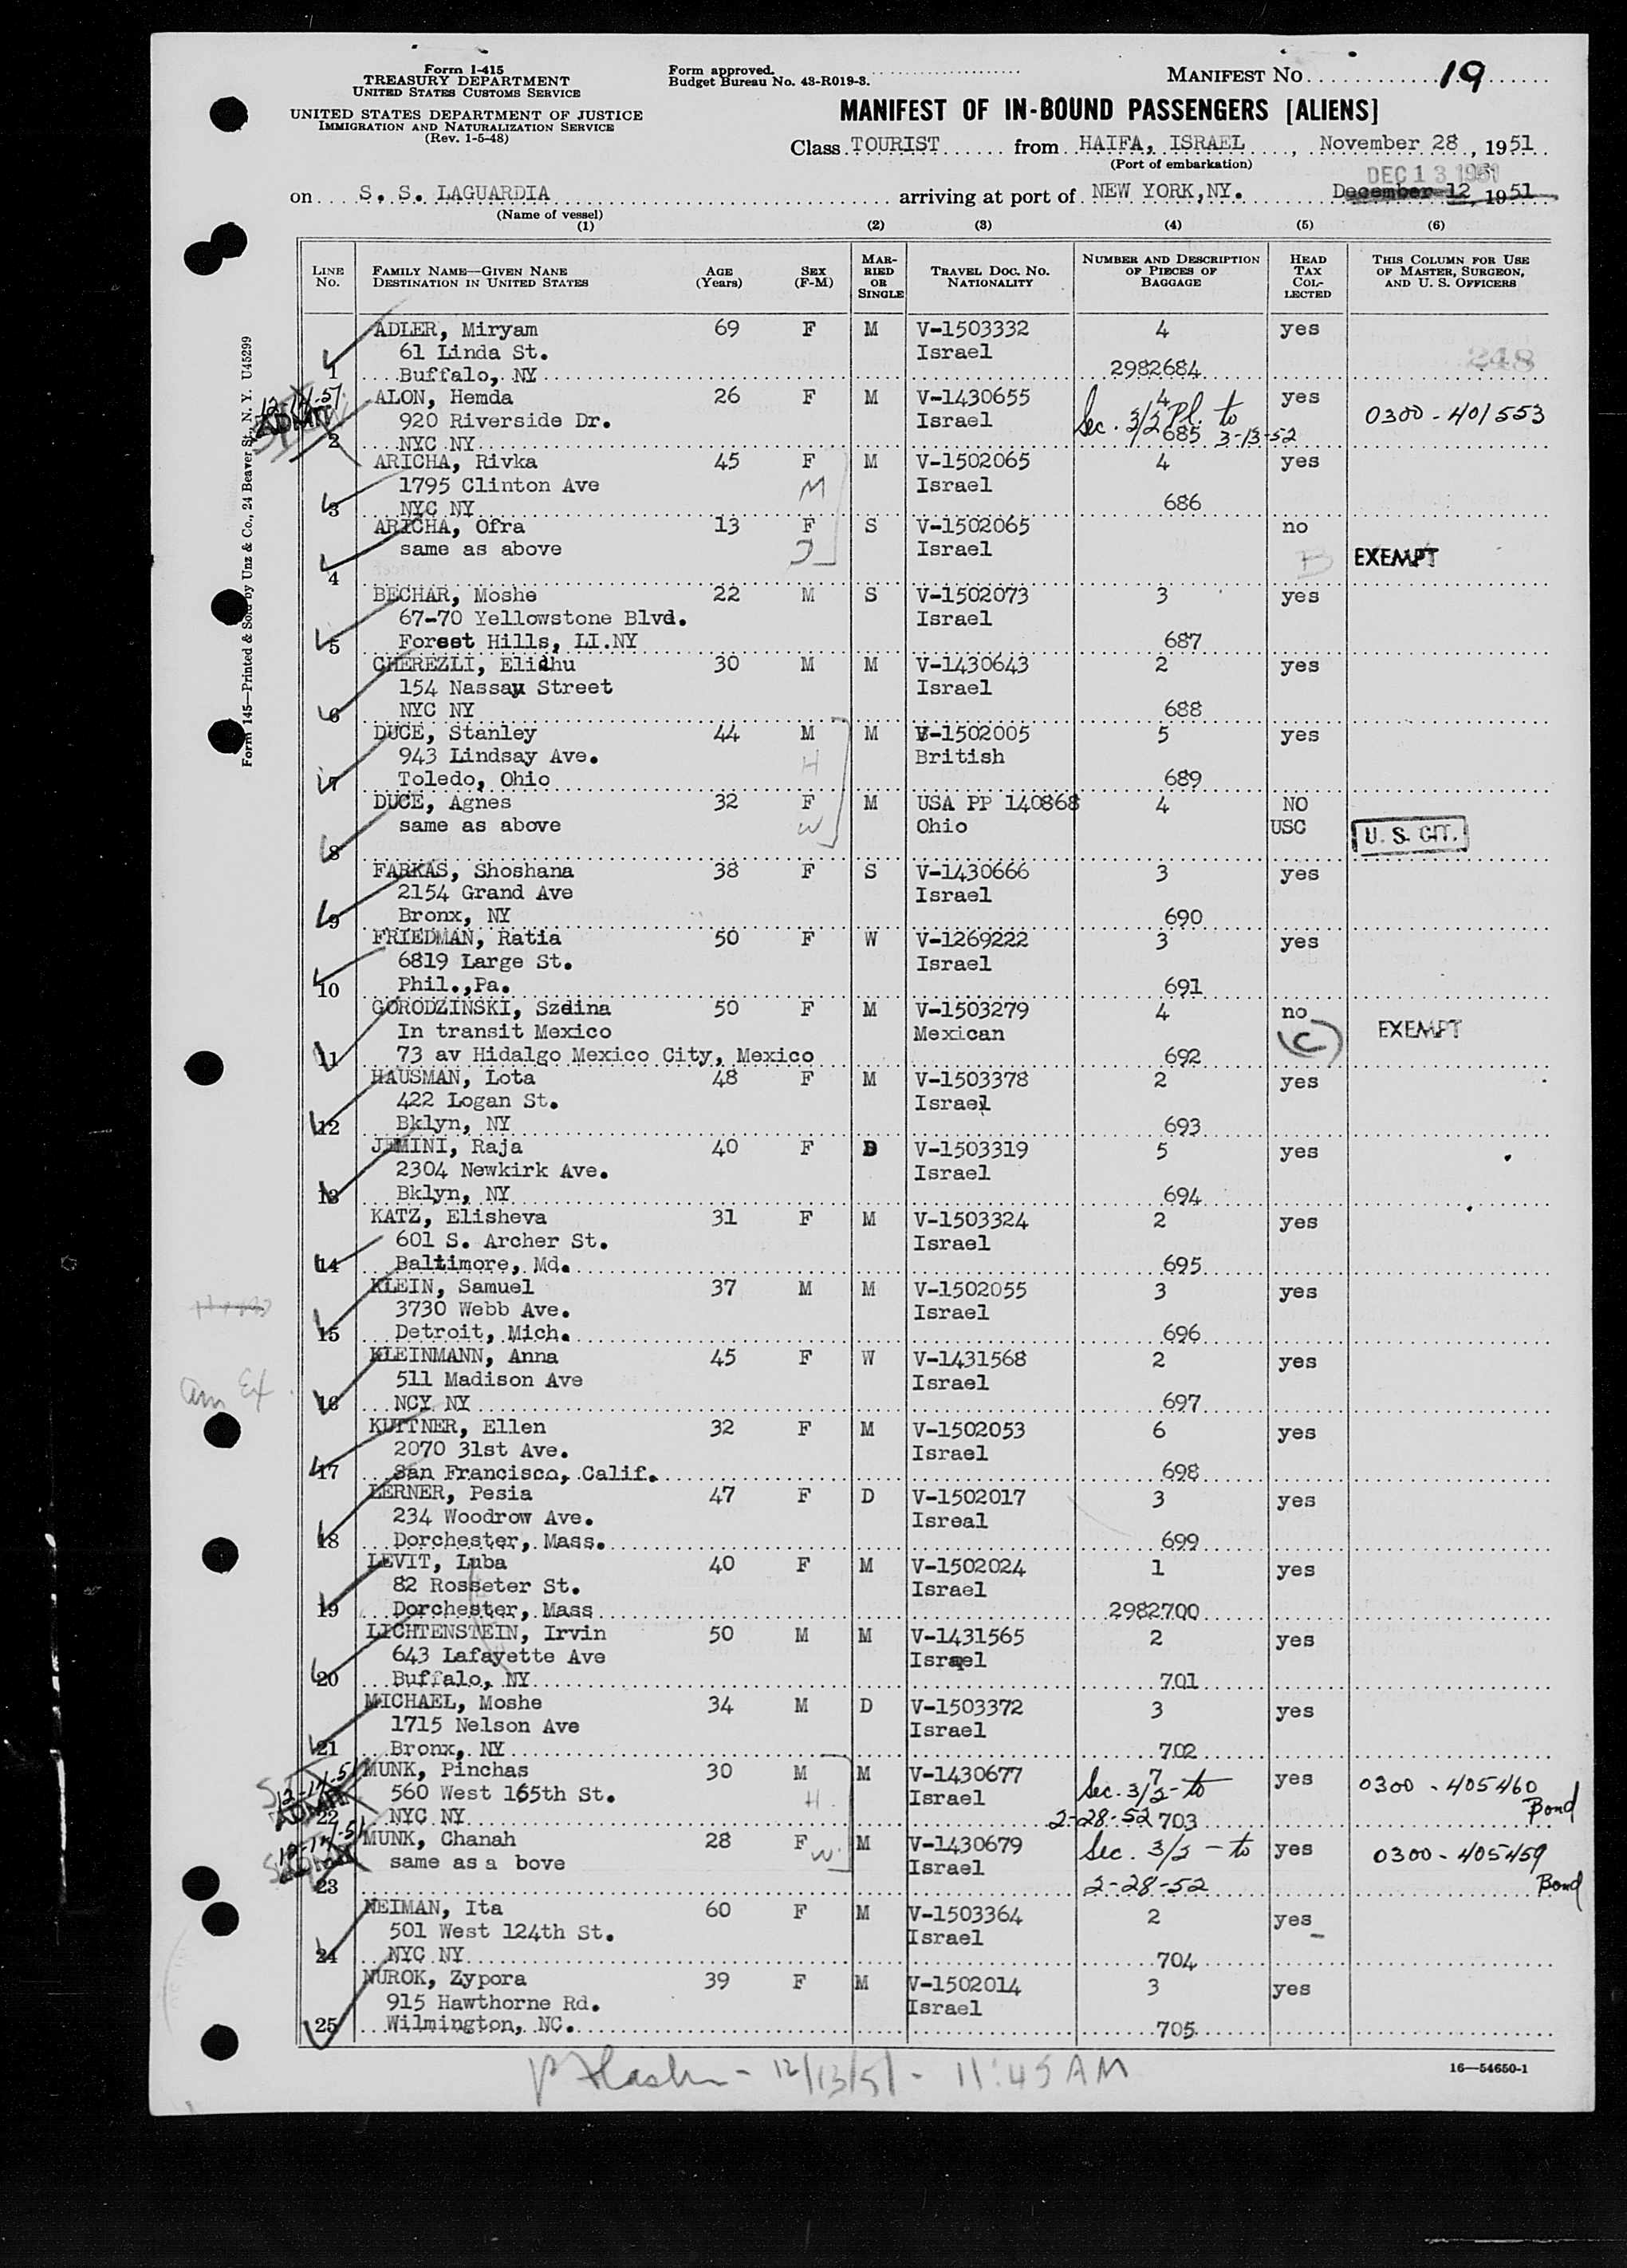 Form I-415
TREASURY DEPARTMENT
UNITED STATES CUSTOMS SERVICE
UNITED STATES DEPARTMENT OF JUSTICE
IMMIGRATION AND NATURALIZATION SERVICE
(Rev. 1-5-48)
Form approved.
Budget Bureau No. 43-R019-3.
MANIFEST NO. 19
MANIFEST OF IN-BOUND PASSENGERS [ALIENS]
Class TOURIST from HAIFA, ISRAEL, November 28, 1951
(Port of embarkation)
DEC 13 1951
on S. S. LAGUARDIA arriving at port of NEW YORK,NY. December 12, 1951
(Name of vessel)
(1) (2) (3) (4) (5) (6)
LINE No. FAMILY NAME—GIVEN NANE DESTINATION IN UNITED STATES AGE (Years) SEX (F-M) MARRIED OR SINGLE TRAVEL DOC. NO. NATIONALITY NUMBER AND DESCRIPTION OF PIECES OF BAGGAGE HEAD TAX COLLECTED THIS COLUMN FOR USE OF MASTER, SURGEON, AND U. S. OFFICERS
ADLER, Miryam 69 F M V-1503332 4 yes
61 Linda St. Israel 248
1 Buffalo, NY 2982684
ALON, Hemda 26 F M V-1430655 4 yes
12-14-51 ADMIT 920 Riverside Dr. Israel Sec. 3/2 Pl. to 0300-401553
2 NYC NY 685 3-13-52
ARICHA, Rivka 45 F M V-1502065 4 yes
1795 Clinton Ave M Israel
3 NYC NY 686
ARICHA, Ofra 13 F S V-1502065 no
same as above Israel B EXEMPT
4
BECHAR, Moshe 22 M S V-1502073 3 yes
67-70 Yellowstone Blvd. Israel
5 Forest Hills, LI.NY 687
CHEREZLI, Elidhu 30 M M V-1430643 2 yes
154 Nassau Street Israel
6 NYC NY 688
DUCE, Stanley 44 M M V-1502005 5 yes
943 Lindsay Ave. H British
7 Toledo, Ohio 689
DUCE, Agnes 32 F M USA PP 140868 4 NO
same as above W Ohio USC U. S. CIT.
8
FARKAS, Shoshana 38 F S V-1430666 3 yes
2154 Grand Ave Israel
9 Bronx, NY 690
FRIEDMAN, Ratia 50 F W V-1269222 3 yes
6819 Large St. Israel
10 Phil.,Pa. 691
GORODZINSKI, Szdina 50 F M V-1503279 4 no
In transit Mexico Mexican (C) EXEMPT
11 73 av Hidalgo Mexico City, Mexico 692
HAUSMAN, Lota 48 F M V-1503378 2 yes
422 Logan St. Israel
12 Bklyn, NY 693
JEMINI, Raja 40 F D V-1503319 5 yes
2304 Newkirk Ave. Israel
13 Bklyn, NY 694
KATZ, Elisheva 31 F M V-1503324 2 yes
601 S. Archer St. Israel
14 Baltimore, Md. 695
KLEIN, Samuel 37 M M V-1502055 3 yes
3730 Webb Ave. Israel
15 Detroit, Mich. 696
KLEINMANN, Anna 45 F W V-1431568 2 yes
am Ex. 511 Madison Ave Israel
16 NCY NY 697
KUTTNER, Ellen 32 F M V-1502053 6 yes
2070 31st Ave. Israel
17 San Francisco, Calif. 698
LERNER, Pesia 47 F D V-1502017 3 yes
234 Woodrow Ave. Isreal
18 Dorchester, Mass. 699
LEVIT, Luba 40 F M V-1502024 1 yes
82 Rosseter St. Israel
19 Dorchester, Mass 2982700
LICHTENSTEIN, Irvin 50 M M V-1431565 2 yes
643 Lafayette Ave Israel
20 Buffalo, NY 701
MICHAEL, Moshe 34 M D V-1503372 3 yes
1715 Nelson Ave Israel
21 Bronx, NY 702
MUNK, Pinchas 30 M M V-1430677 7 yes
12-14-51 ADMIT 560 West 165th St. H Israel Sec. 3/2 - to 0300-405460
22 NYC NY 2-28-52 703 Bond
12-14-51 MUNK, Chanah 28 F M V-1430679 Sec. 3/2 - to yes
same as a bove W Israel 0300-405459
23 2-28-52 Bond
NEIMAN, Ita 60 F M V-1503364 2 yes
501 West 124th St. Israel
24 NYC NY 704
NUROK, Zypora 39 F M V-1502014 3 yes
915 Hawthorne Rd. Israel
25 Wilmington, NC. 705
12/13/51 - 11:45 AM
16—54650-1
Form 145—Printed & Sold by Unz & Co., 24 Beaver St., N. Y. U45299